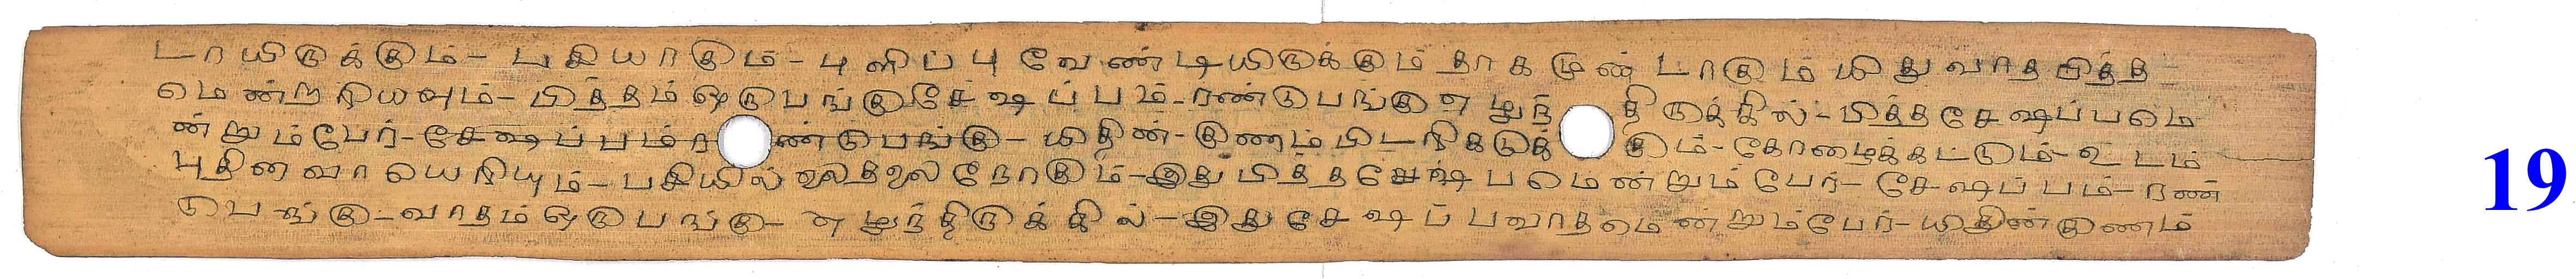 டாயிருக்கும்- பசியாகும்- புளிப்பு வேண்டியிருக்கும் தாகமுண்டாகும் யிது வாத பித்த
மென்றறியவும்- பித்தம் ஒருபங்கு சேஷப்பம்- ரண்டுபங்கு எழுந்திருக்கில்- பித்த சேஷப்பமெ
ன்றும்பேர்- சேஷப்பம் ரண்டுபங்கு- யிதின்- குணம் பிடரிகடுக்கும்- கோழைக்கட்டும்- உடம்
புதினவா லெயரியும்- பசியில் நோகும்- இது பித்த சேஷபமென்றும் பேர்- சேஷப்பம்- ரண்
டுபங்கு- வாதம் ஒருபங்கு- எழுந்திருக்கில்- இது சேஷப்பவாதமென்றும்பேர்- யிதின்குணம்
19